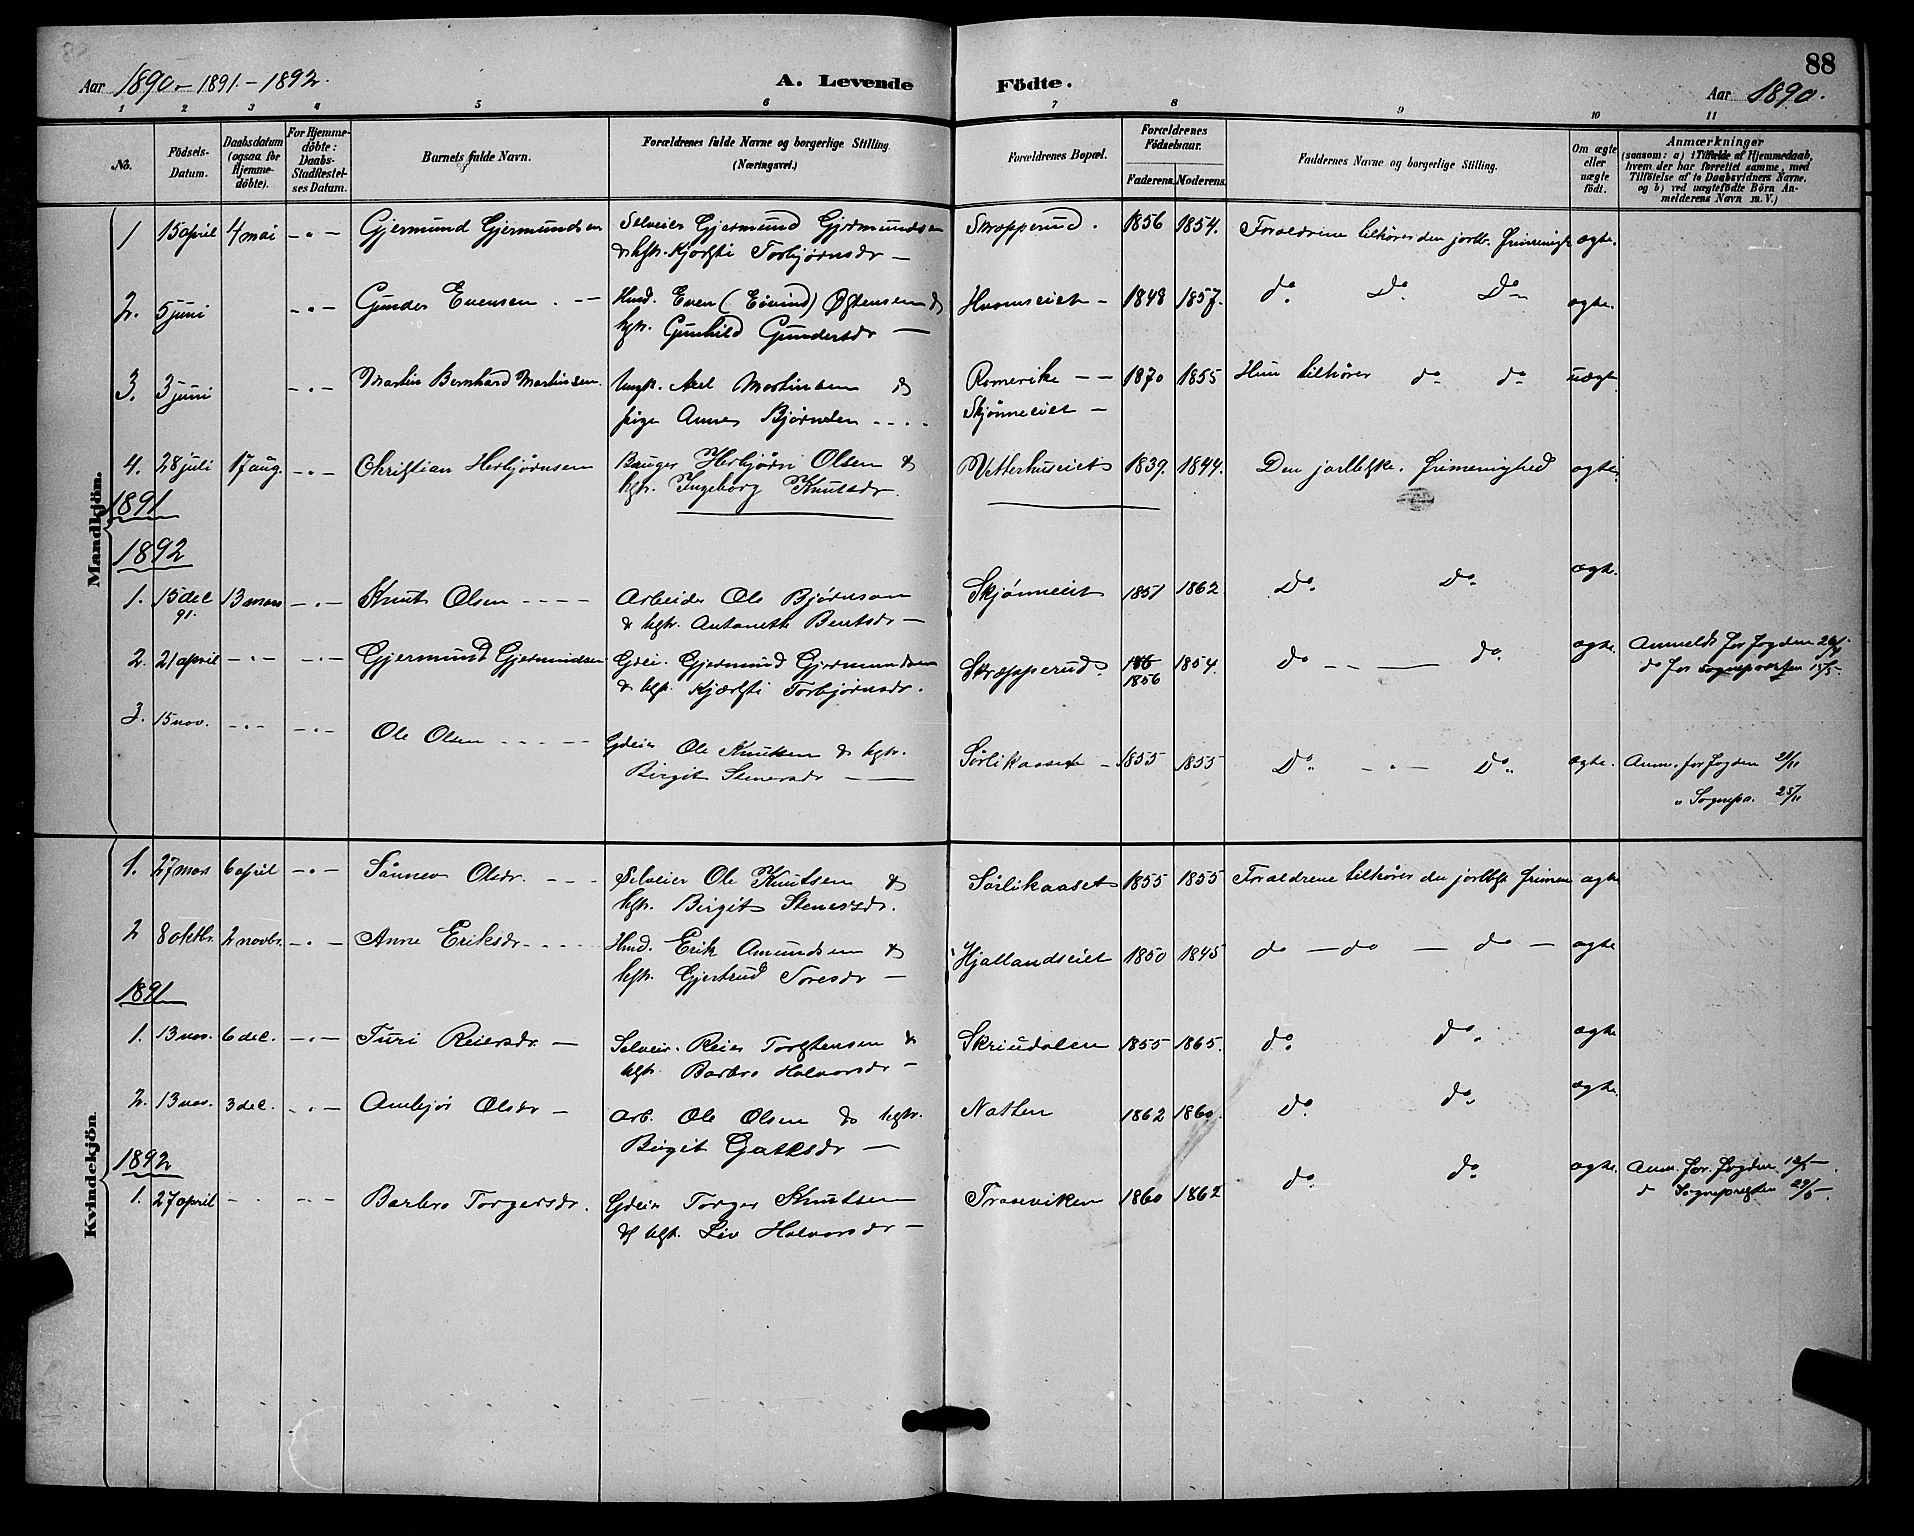 88
Aar 1890 - 1891 - 1892.
A. Levende Födte.
Aar 1890.
1 2 3 4 5 6 7 8 9 10 11
No.
Födsels-Datum.
Daabsdatum (ogsaa for Hjemmedöbte).
For Hjemmedöbte: Daabs-Stadfestelses Datum.
Barnets fulde Navn.
Forældrenes fulde Navne og borgerlige Stilling. (Næringsvei.)
Forældrenes Bopæl.
Forældrenes Födselsaar.
Faderens. Moderens.
Faddernes Navne og borgerlige Stilling.
Om ægte eller uægte födt.
Anmærkninger
(saasom: a) i Tilfælde af Hjemmedaab, hvem der har forrettet samme, med Tilföielse af to Daabsvidners Navne, og b) ved uægtefödte Börn Anmelderens Navn m. V.)
Mandkjön.
1 15 april 4 mai - " - Gjermund Gjermundsen Selveier Gjermund Gjermundsen Skræpperud. 1856 1854. Forældrene tilhører den ægte.
& hgtr. Kjersti Torbjørnsdr -
2. 5 juni - " - Gunder Evensen. - - Hmd. Even (Eivind) Østensen & Hvamseiet - 1848 1857. do. Do. Do. ægte.
hgtr. Gunhild Gundersdr -
3. 3 juni - " - Martin Bernhard Martinsen. Ungk. Axel Martinsen & Romerike - - 1870 1855 Hun tilhører do do uægt
pige Anne Bjørnsen - - - - Skjønneeiet -
4. 28 juli 17 aug. - " - Christian Herbjørnsen Bruger Herbjørn Olsen & Vetterhuseiet 1839. 1844. Den frimenighed ægte.
hgtr. Ingeborg Knutsdr.
1891
1892
1. 15 dec 91. 13 mars - " - Knut Olsen - - - - Arbeider Ole Bjørnson Skjønneeiet 1851 1862 Do. Do. ægte.
& hgtr. Antonette Bentsdr -
2. 21 april - " - - " - Gjermund Gjermundsen Gdeier. Gjermund Gjermundsen Skræpperud. 1856 1854. do - - - do. ægte. Anmeldt for fogden
& hgtr. Kjærsti Torbjørnsdr. do for sognepræsten
3. 15 nov. - " - - " - Ole Olsen - - - - - Gdeier Ole Knutsen & hgtr. Sørlikaaset - 1855 1855 Do. - " - Do. ægte. Anm. for fogden 21/11
Birgit Stenersdr - - " Sognepr. 25/11
Kvindekjön
1. 27 mars 6 april - " - Sønnev Olsdr. - - - Selveier Ole Knutsen & Sørlikaaset 1855 1855 Forældrene tilhører den ægte
hgtr. Birgit Stenersdr.
2 8 oktbr. 2 novbr. - " - Anne Eriksdr. - - - - Hmd. Erik Amundsen & Hjallandseiet 1850 1845 do - do - do - ægte
hgtr. Gjertrud Toresdr -
1891
1. 13 nov. 6 dec. - " - Turi Reiersdr. - Selveier. Reier Torstensen & Skriudalen 1855 1865. do. do. ægte
hgtr. Barbro Halvorsdr -
2. 13 nov. 3 dec. - " - Ambjør Olsdr - Arb. Ole Olsen & hgtr. Natten 1862 1860. do. do. ægte.
Birgit -
1892
1. 27 april - " - - Barbro Torgersdr. Gdeier Torger Knutsen Traaviken 1860 1862 do. do. ægte. Anm. for fogden
& hgtr. Liv Halvorsdr - d Sognepresten